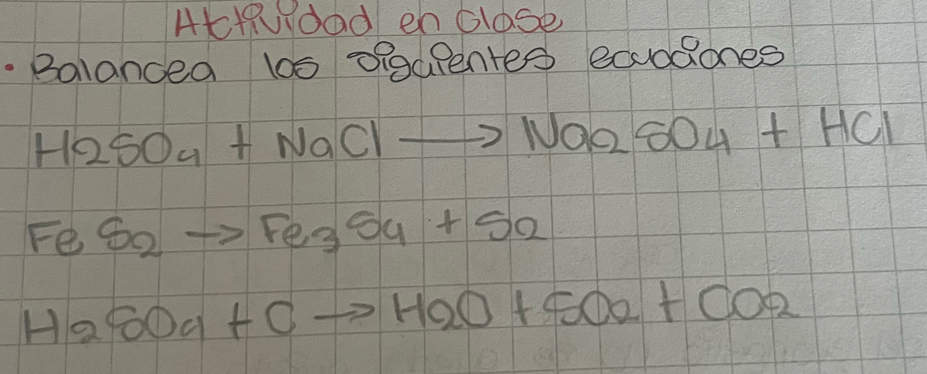 Actividad en clase
• Balancea las siguientes ecuaciones
H2SO4 + NaCl → Na2SO4 + HCl
FeS2 → Fe3S4 + S2
H2SO4 + C → H2O + SO2 + CO2